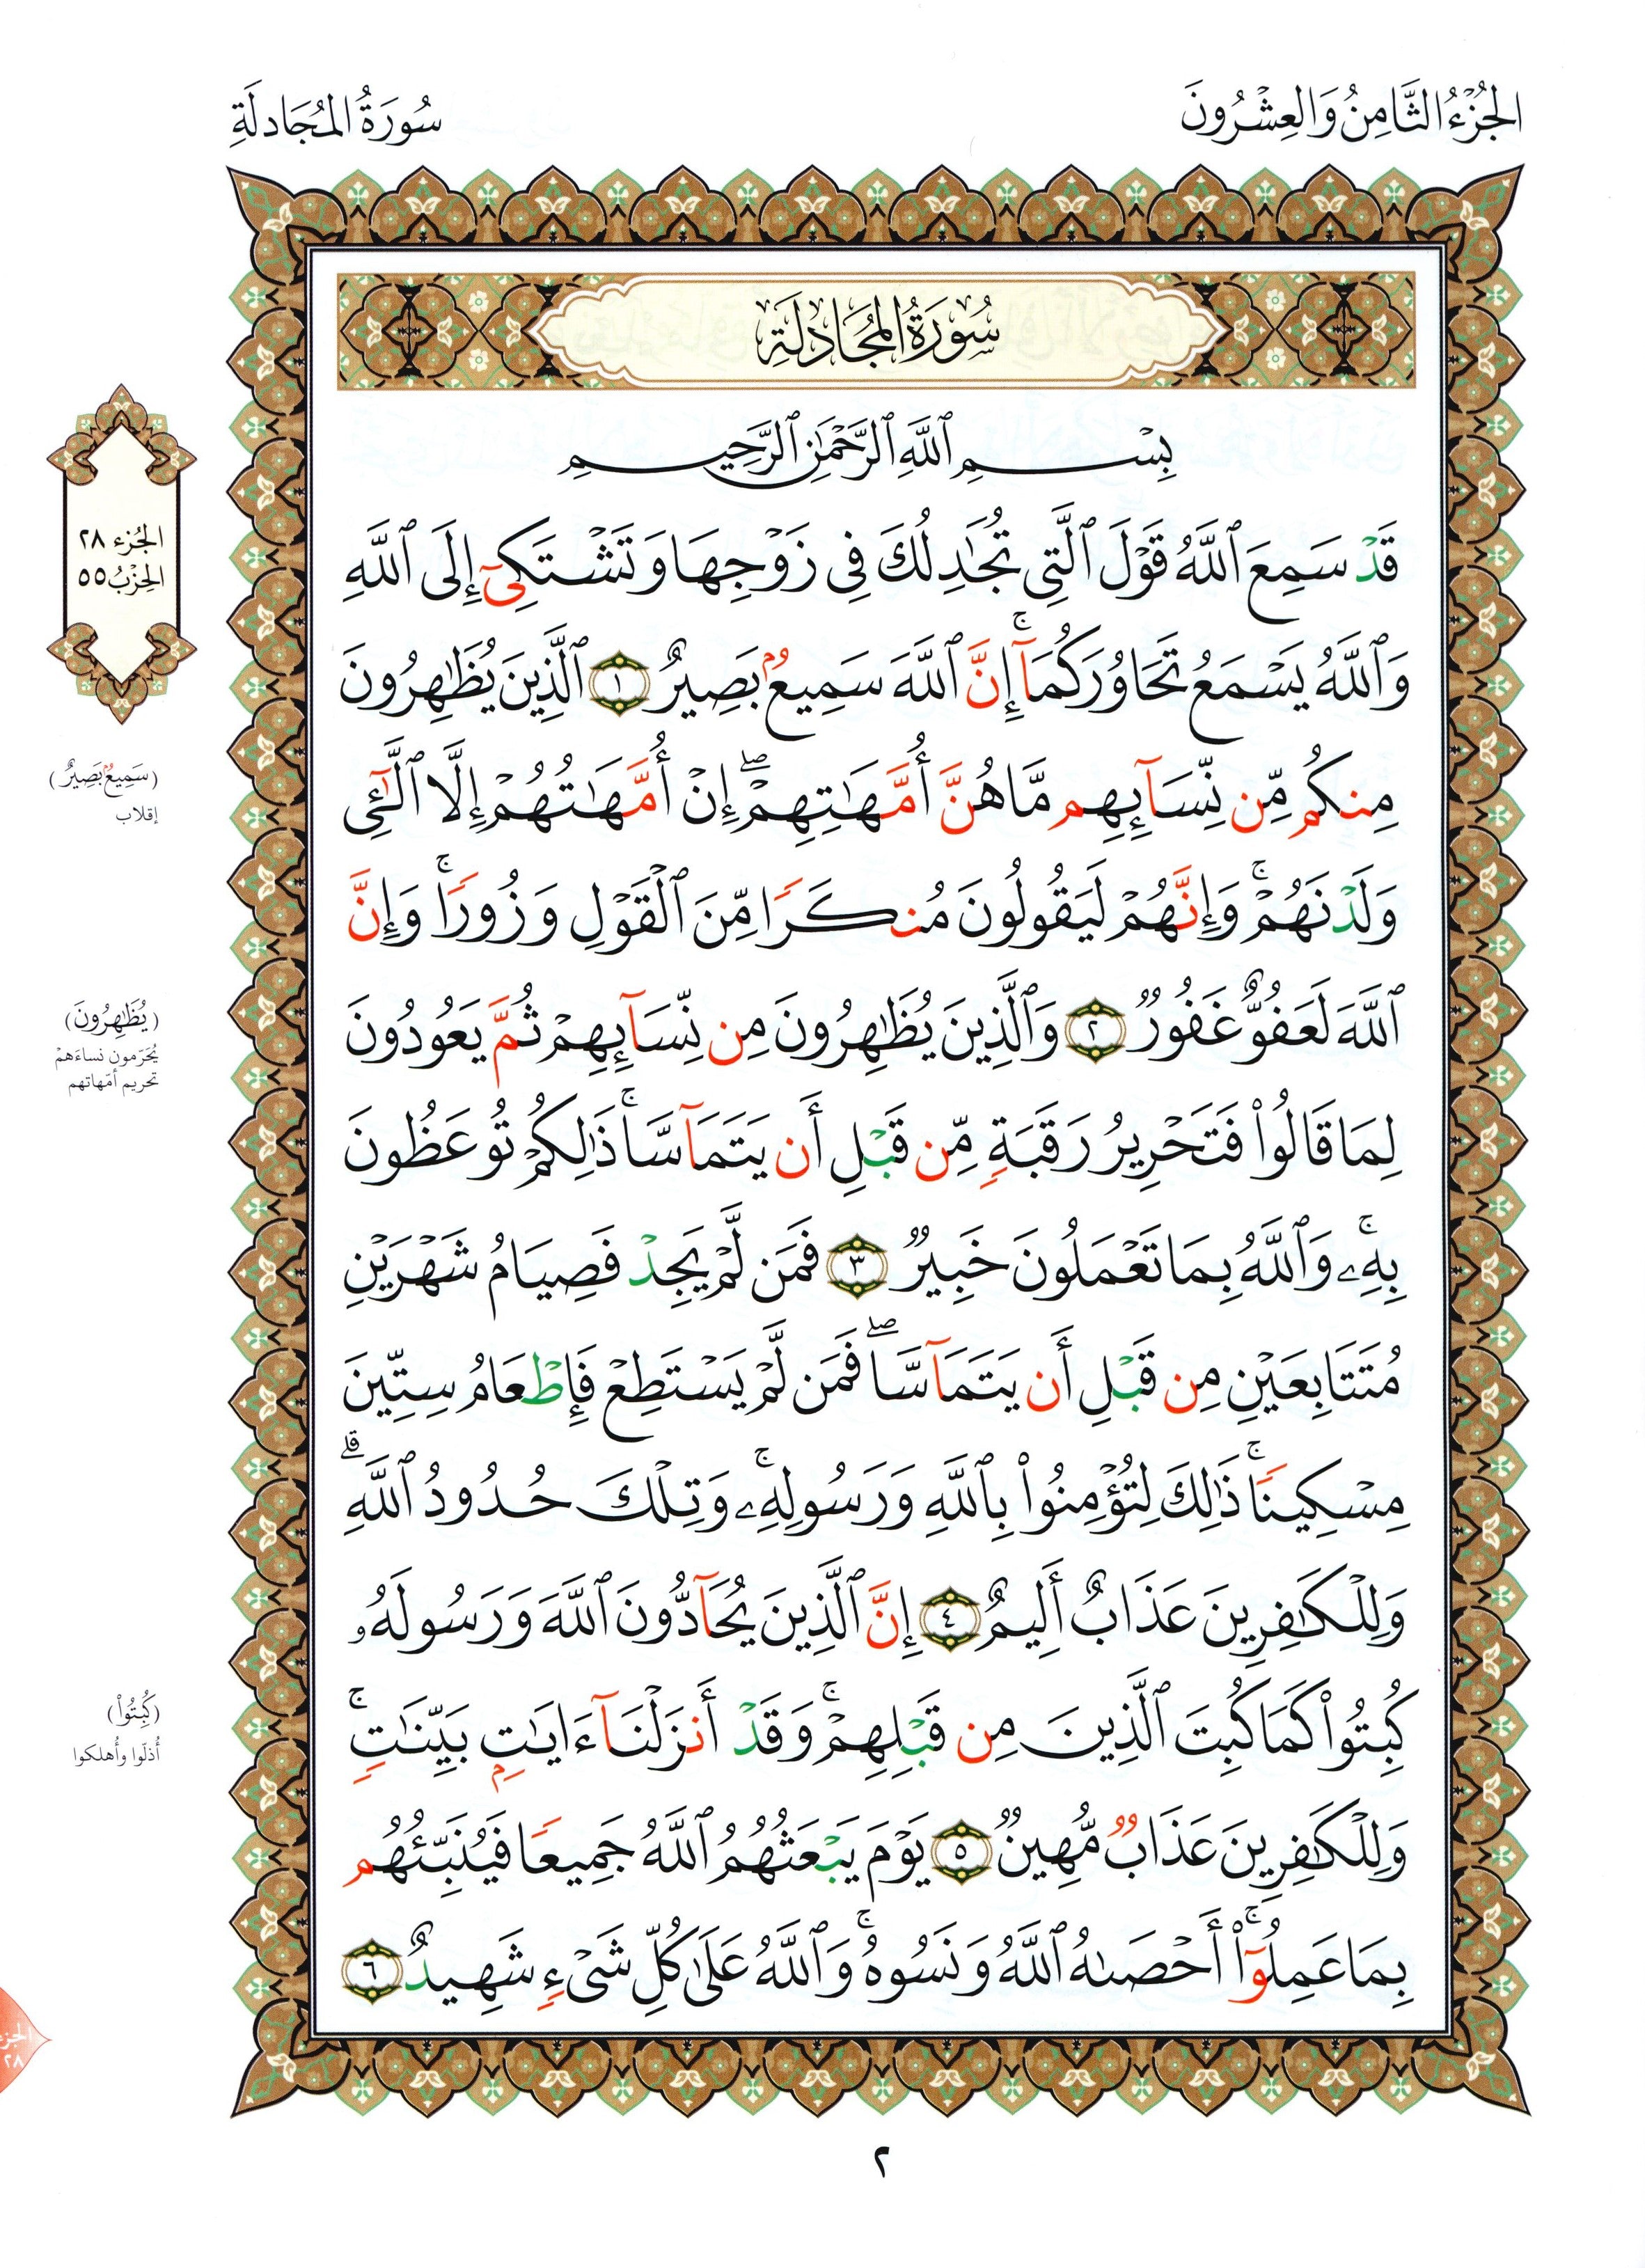 الجُزْءُ الثَّامِنُ وَالعِشْرُونَ
سُورَةُ المُجَادلَةِ
سُورَةُ المُجَادلَةِ
بِسْمِ ٱللَّهِ ٱلرَّحْمَٰنِ ٱلرَّحِيمِ
قَدْ سَمِعَ ٱللَّهُ قَوْلَ ٱلَّتِى تُجَٰدِلُكَ فِى زَوْجِهَا وَتَشْتَكِىٓ إِلَى ٱللَّهِ
وَٱللَّهُ يَسْمَعُ تَحَاوُرَكُمَآ ۚ إِنَّ ٱللَّهَ سَمِيعٌۢ بَصِيرٌ ١ ٱلَّذِينَ يُظَٰهِرُونَ
مِنكُم مِّن نِّسَآئِهِم مَّا هُنَّ أُمَّهَٰتِهِمْ ۖ إِنْ أُمَّهَٰتُهُمْ إِلَّا ٱلَّٰٓـِٔى
وَلَدْنَهُمْ ۚ وَإِنَّهُمْ لَيَقُولُونَ مُنكَرًا مِّنَ ٱلْقَوْلِ وَزُورًا ۚ وَإِنَّ
ٱللَّهَ لَعَفُوٌّ غَفُورٌ ٢ وَٱلَّذِينَ يُظَٰهِرُونَ مِن نِّسَآئِهِمْ ثُمَّ يَعُودُونَ
لِمَا قَالُوا۟ فَتَحْرِيرُ رَقَبَةٍ مِّن قَبْلِ أَن يَتَمَآسَّا ۚ ذَٰلِكُمْ تُوعَظُونَ
بِهِۦ ۚ وَٱللَّهُ بِمَا تَعْمَلُونَ خَبِيرٌ ٣ فَمَن لَّمْ يَجِدْ فَصِيَامُ شَهْرَيْنِ
مُتَتَابِعَيْنِ مِن قَبْلِ أَن يَتَمَآسَّا ۖ فَمَن لَّمْ يَسْتَطِعْ فَإِطْعَامُ سِتِّينَ
مِسْكِينًا ۚ ذَٰلِكَ لِتُؤْمِنُوا۟ بِٱللَّهِ وَرَسُولِهِۦ ۚ وَتِلْكَ حُدُودُ ٱللَّهِ ۗ
وَلِلْكَٰفِرِينَ عَذَابٌ أَلِيمٌ ٤ إِنَّ ٱلَّذِينَ يُحَآدُّونَ ٱللَّهَ وَرَسُولَهُۥ
كُبِتُوا۟ كَمَا كُبِتَ ٱلَّذِينَ مِن قَبْلِهِمْ ۚ وَقَدْ أَنزَلْنَآ ءَايَٰتٍۭ بَيِّنَٰتٍ ۚ
وَلِلْكَٰفِرِينَ عَذَابٌ مُّهِينٌ ٥ يَوْمَ يَبْعَثُهُمُ ٱللَّهُ جَمِيعًا فَيُنَبِّئُهُم
بِمَا عَمِلُوٓا۟ ۚ أَحْصَىٰهُ ٱللَّهُ وَنَسُوهُ ۚ وَٱللَّهُ عَلَىٰ كُلِّ شَىْءٍ شَهِيدٌ ٦
الجُزء ٢٨
الحِزْبُ ٥٥
(سَمِيعٌۢ بَصِيرٌ)
إقلاب
(يُظَٰهِرُونَ)
يُحَرّمون نساءَهمْ
تحريم أمّهاتهم
(كُبِتُوا۟)
أُذلّوا وأُهلكوا
الجزء
٢٨
٢